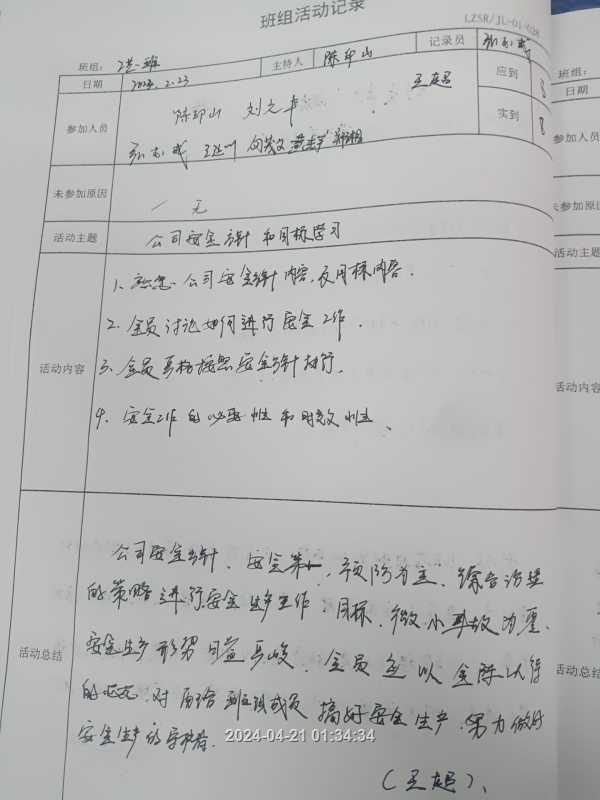 班组活动记录
LZSR/JL-01-028
班组:
日期 2024.2.23 主持人 陈印山 记录员
参加人员 陈印山 刘文 王超 应到 8
实到 8
未参加原因 / 无
活动主题 公司安全方针和目标学习
活动内容
1、熟悉公司安全方针内容,及目标内容.
2、全员讨论如何进行安全工作.
3、全员严格按照安全方针执行.
4、安全工作的必要性和时效性、
活动总结
公司安全方针、安全第一,预防为主、综合治理
的策略进行安全生产工作.目标,微小事故为零.
安全生产形势日益严峻.全员应以全阵以待
的状态,对 班组成员 搞好安全生产.努力做好
安全生产的守护者.
(王超)、
2024-04-21 01:34:34
班组:
日期
参加人员
未参加原因
活动主题
活动内容
活动总结